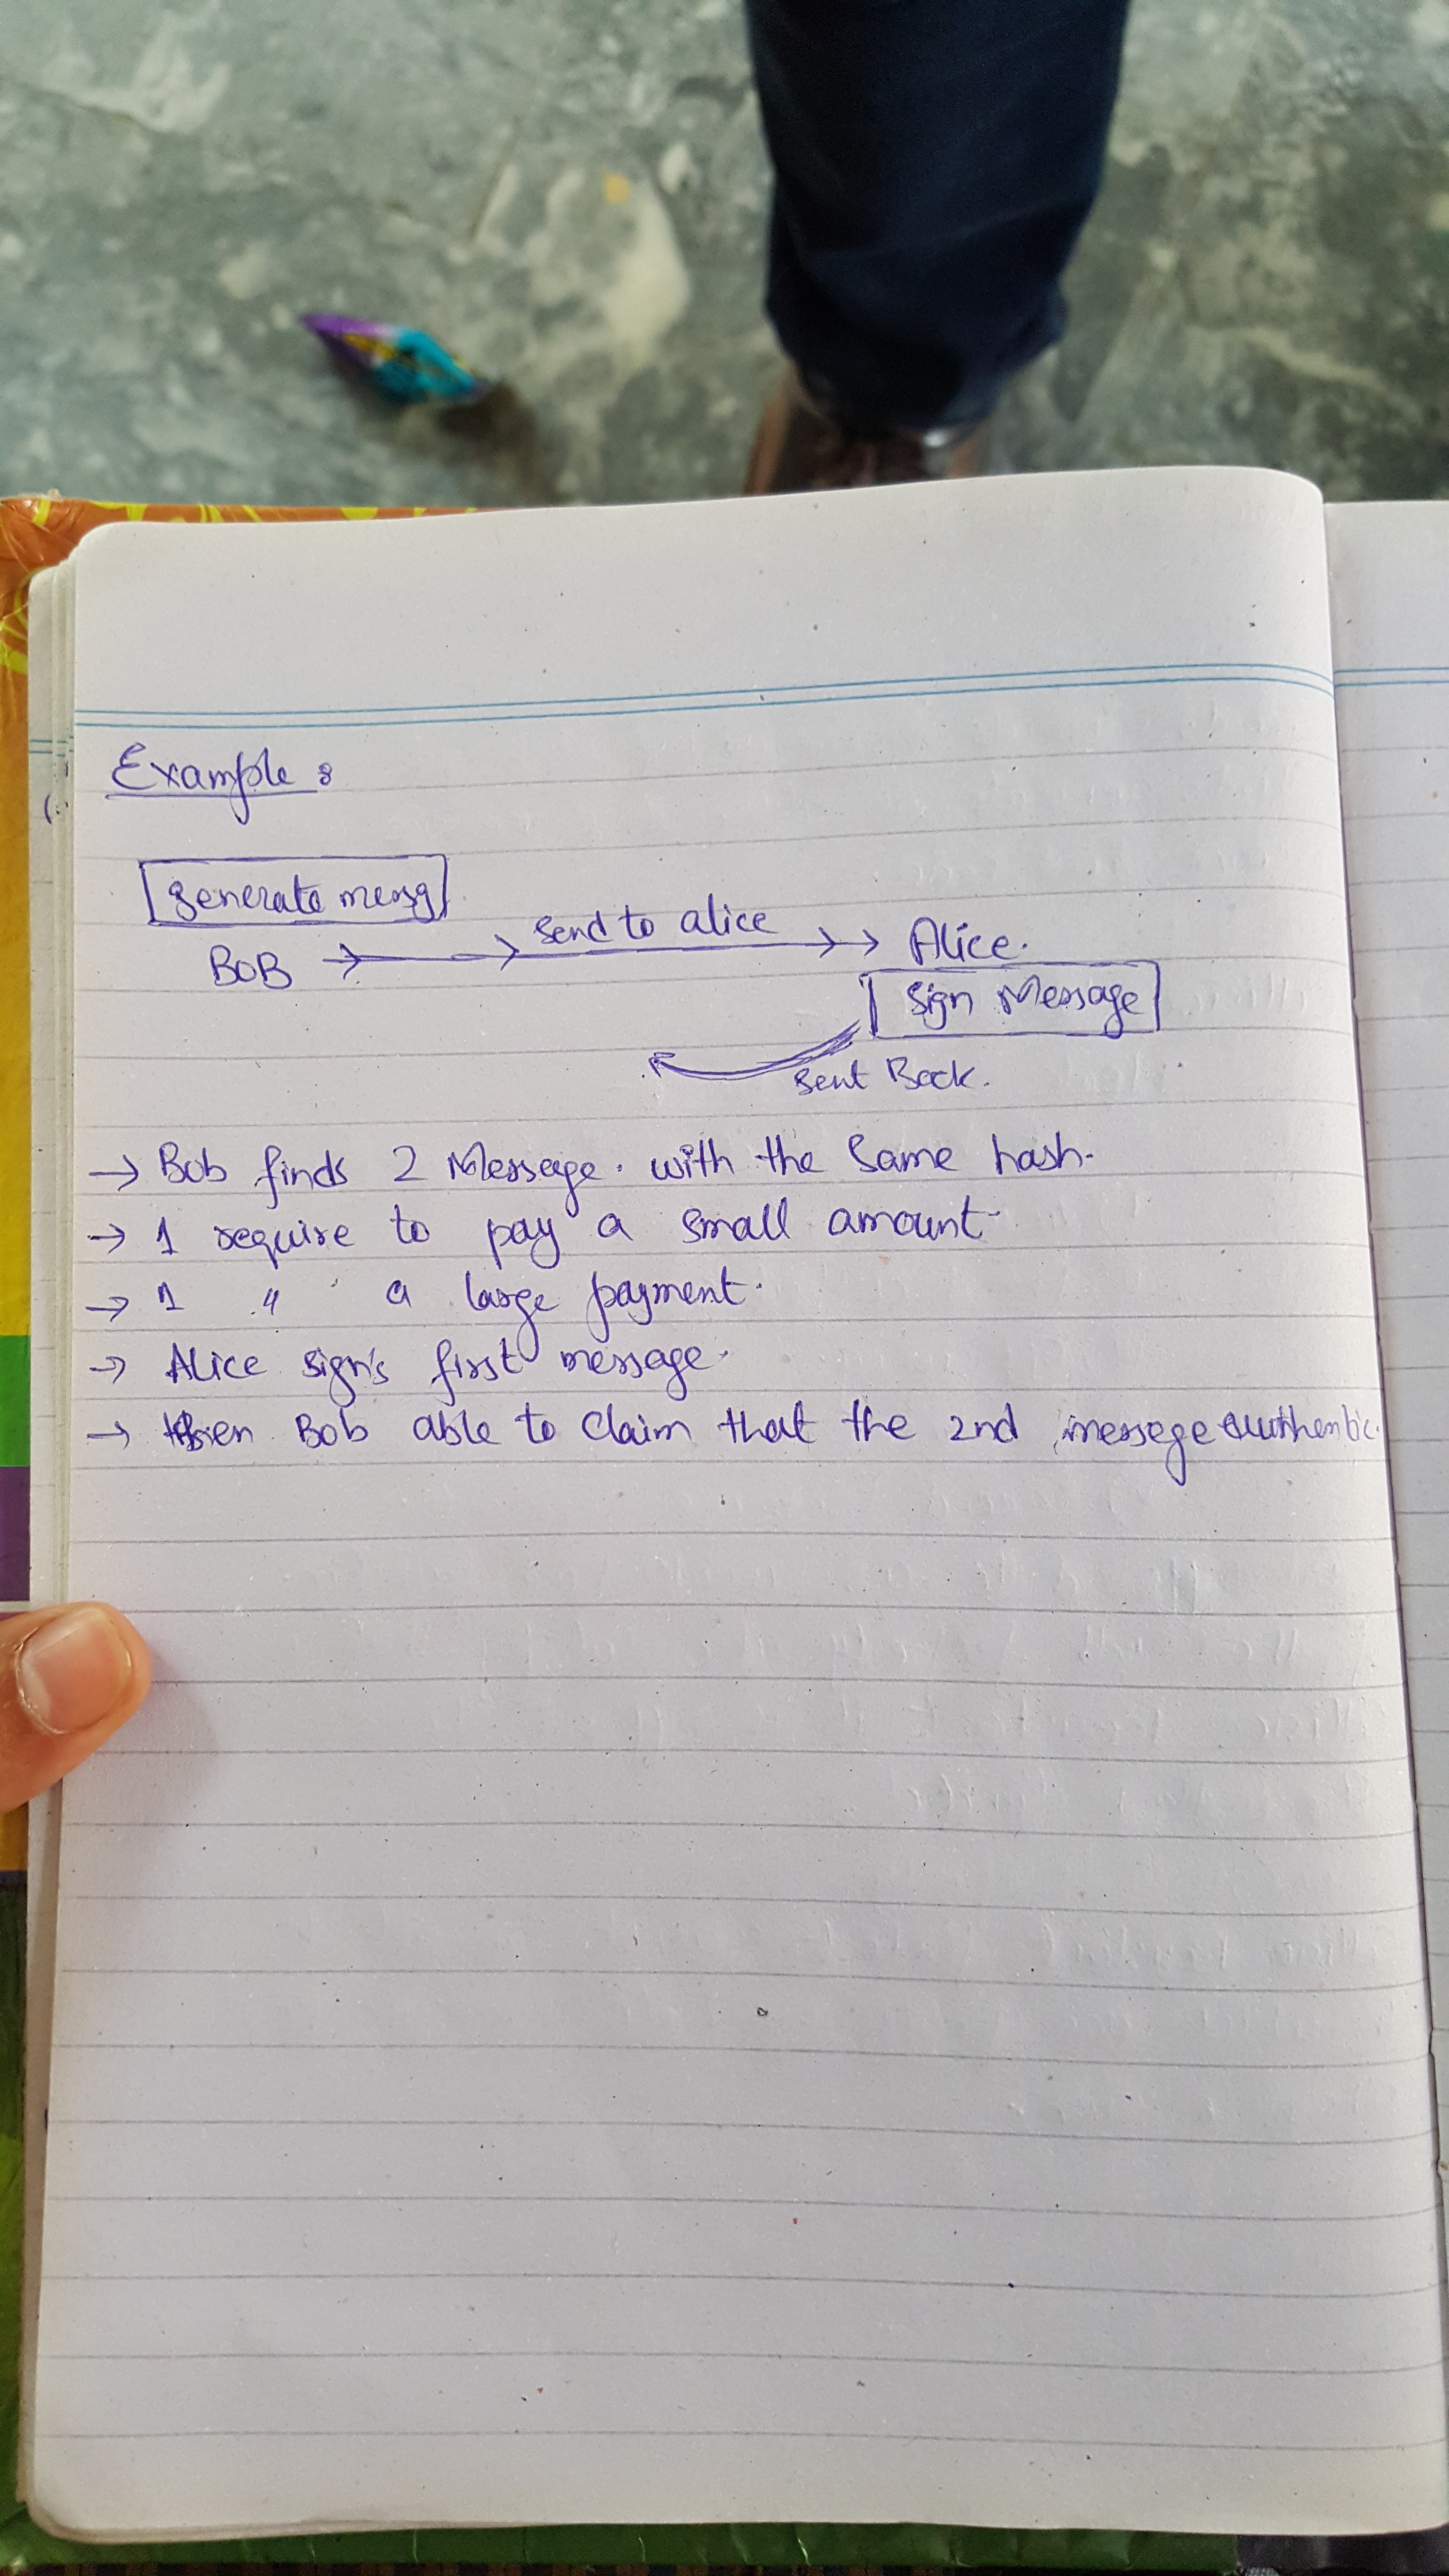 Example :
generate messg
send to alice
BOB Alice.
Sign Message
sent Back.
→ Bob finds 2 Message. with the Same hash.
→ 1 require to pay a small amount.
→ 1 " a large payment.
→ Alice sign's first message.
→ then Bob able to Claim that the 2nd message authentic.